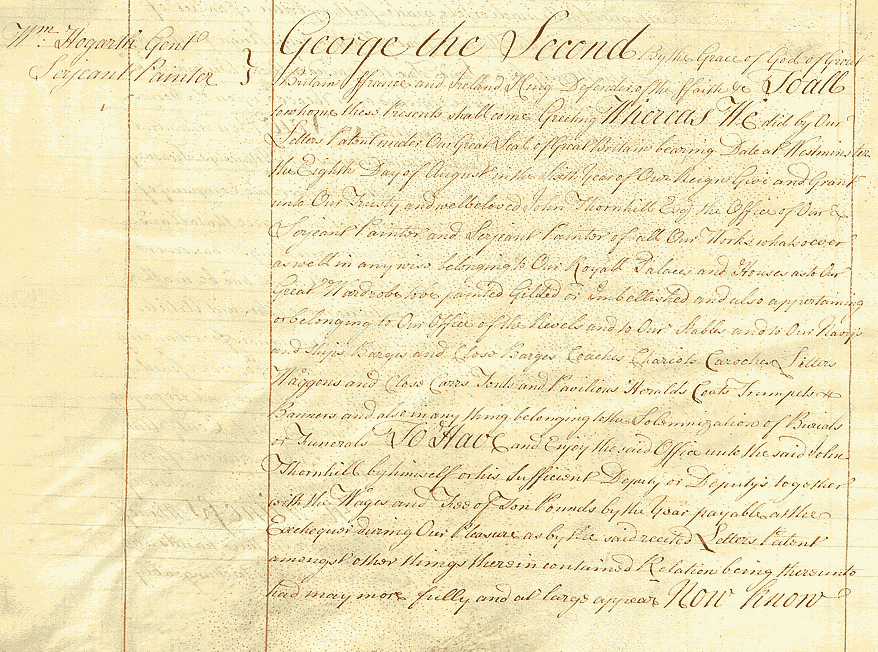 Wm. Hogarth Gent
Serjeant Painter
George the Second By the Grace of God of Great
Britain ffrance and Ireland King Defender of the ffaith &c To all
to whome these Presents shall come Greeting Whereas We did by Our
Letters Patent under Our Great Seal of Great Britain bearing Date at Westminster
the Eighth Day of August in the Year of Our Reign Give and Grant
unto Our Trusty and welbeloved John Thornhill Esqr. the Office of Our
Serjeant Painter and Serjeant Painter of all Our Works whatsoever
as well in any wise belonging to Our Royall Palaces and Houses as to Our
Great Wardrobe to be painted Gilded or Embellished and also appertaining
or belonging to Our Office of the Revels and to Our Stables and to Our Navys
and Ships Barges and Close Barges Coaches Chariots Caroches Litters
Waggons and Close Carrs Tents and Pavilions Heralds Coats Trumpets
Banners and also in any thing belonging to the Solemnization of Burials
or Funerals To Have and Enjoy the said Office unto the said John
Thornhill by himself or his Sufficient Deputy or Deputys together
with the Wages and Fee of Ten Pounds by the Year payable at the
Exchequer during Our Pleasure as by the said recited Letters Patent
amongst other things therein contained Relation being thereunto
had may more fully and at large appear Now Know